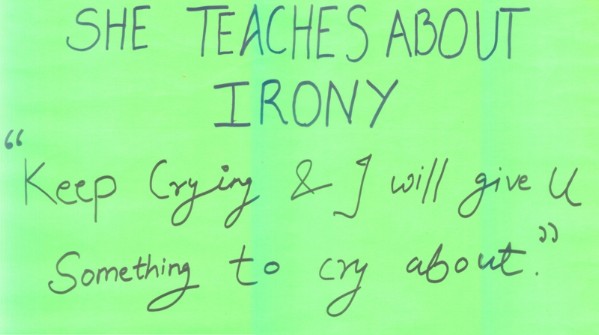 SHE TEACHES ABOUT
IRONY
“Keep Crying & I will give U
Something to cry about.”